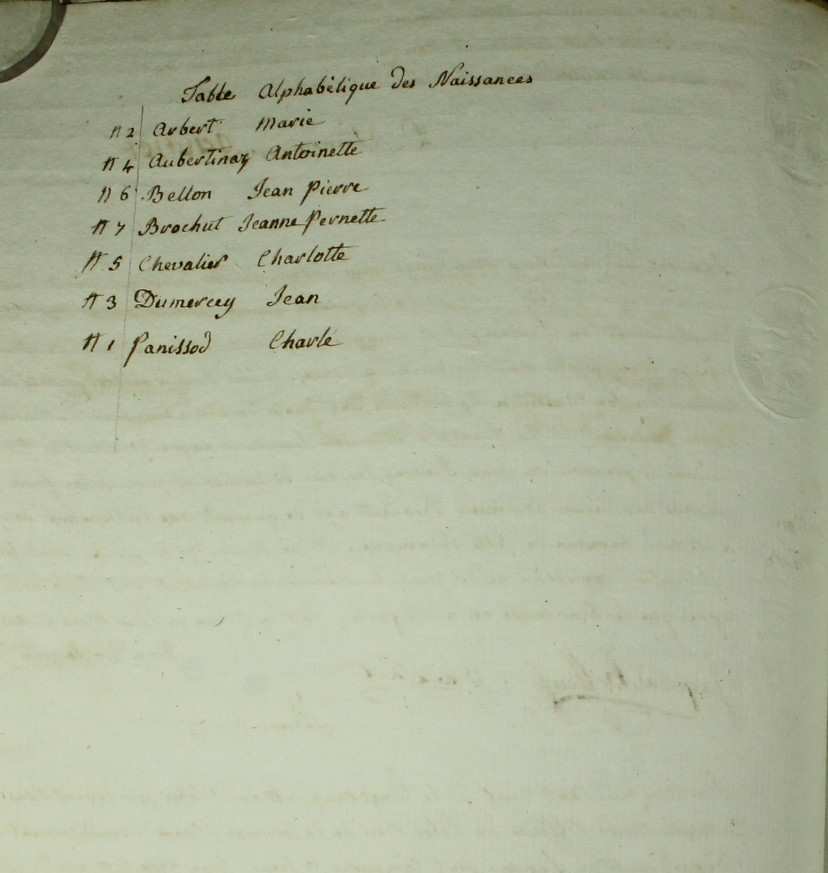 Table Alphabétique des Naissances
n 2 Arbert Marie
n 4 Aubertinaz Antoinette
n 6 Bellon Jean Pierre
n 7 Brochut Jeanne Pernette
n 5 Chevalier Charlotte
n 3 Dumercey Jean
n 1 Panissod Charle